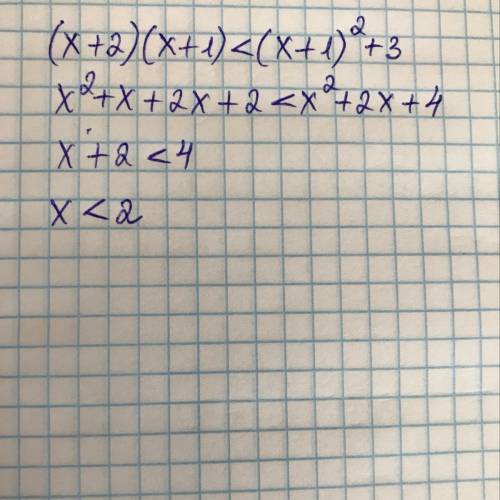 (x+2)(x+1)<(x+1)²+3
x²+x+2x+2<x²+2x+4
x+2<4
x<2